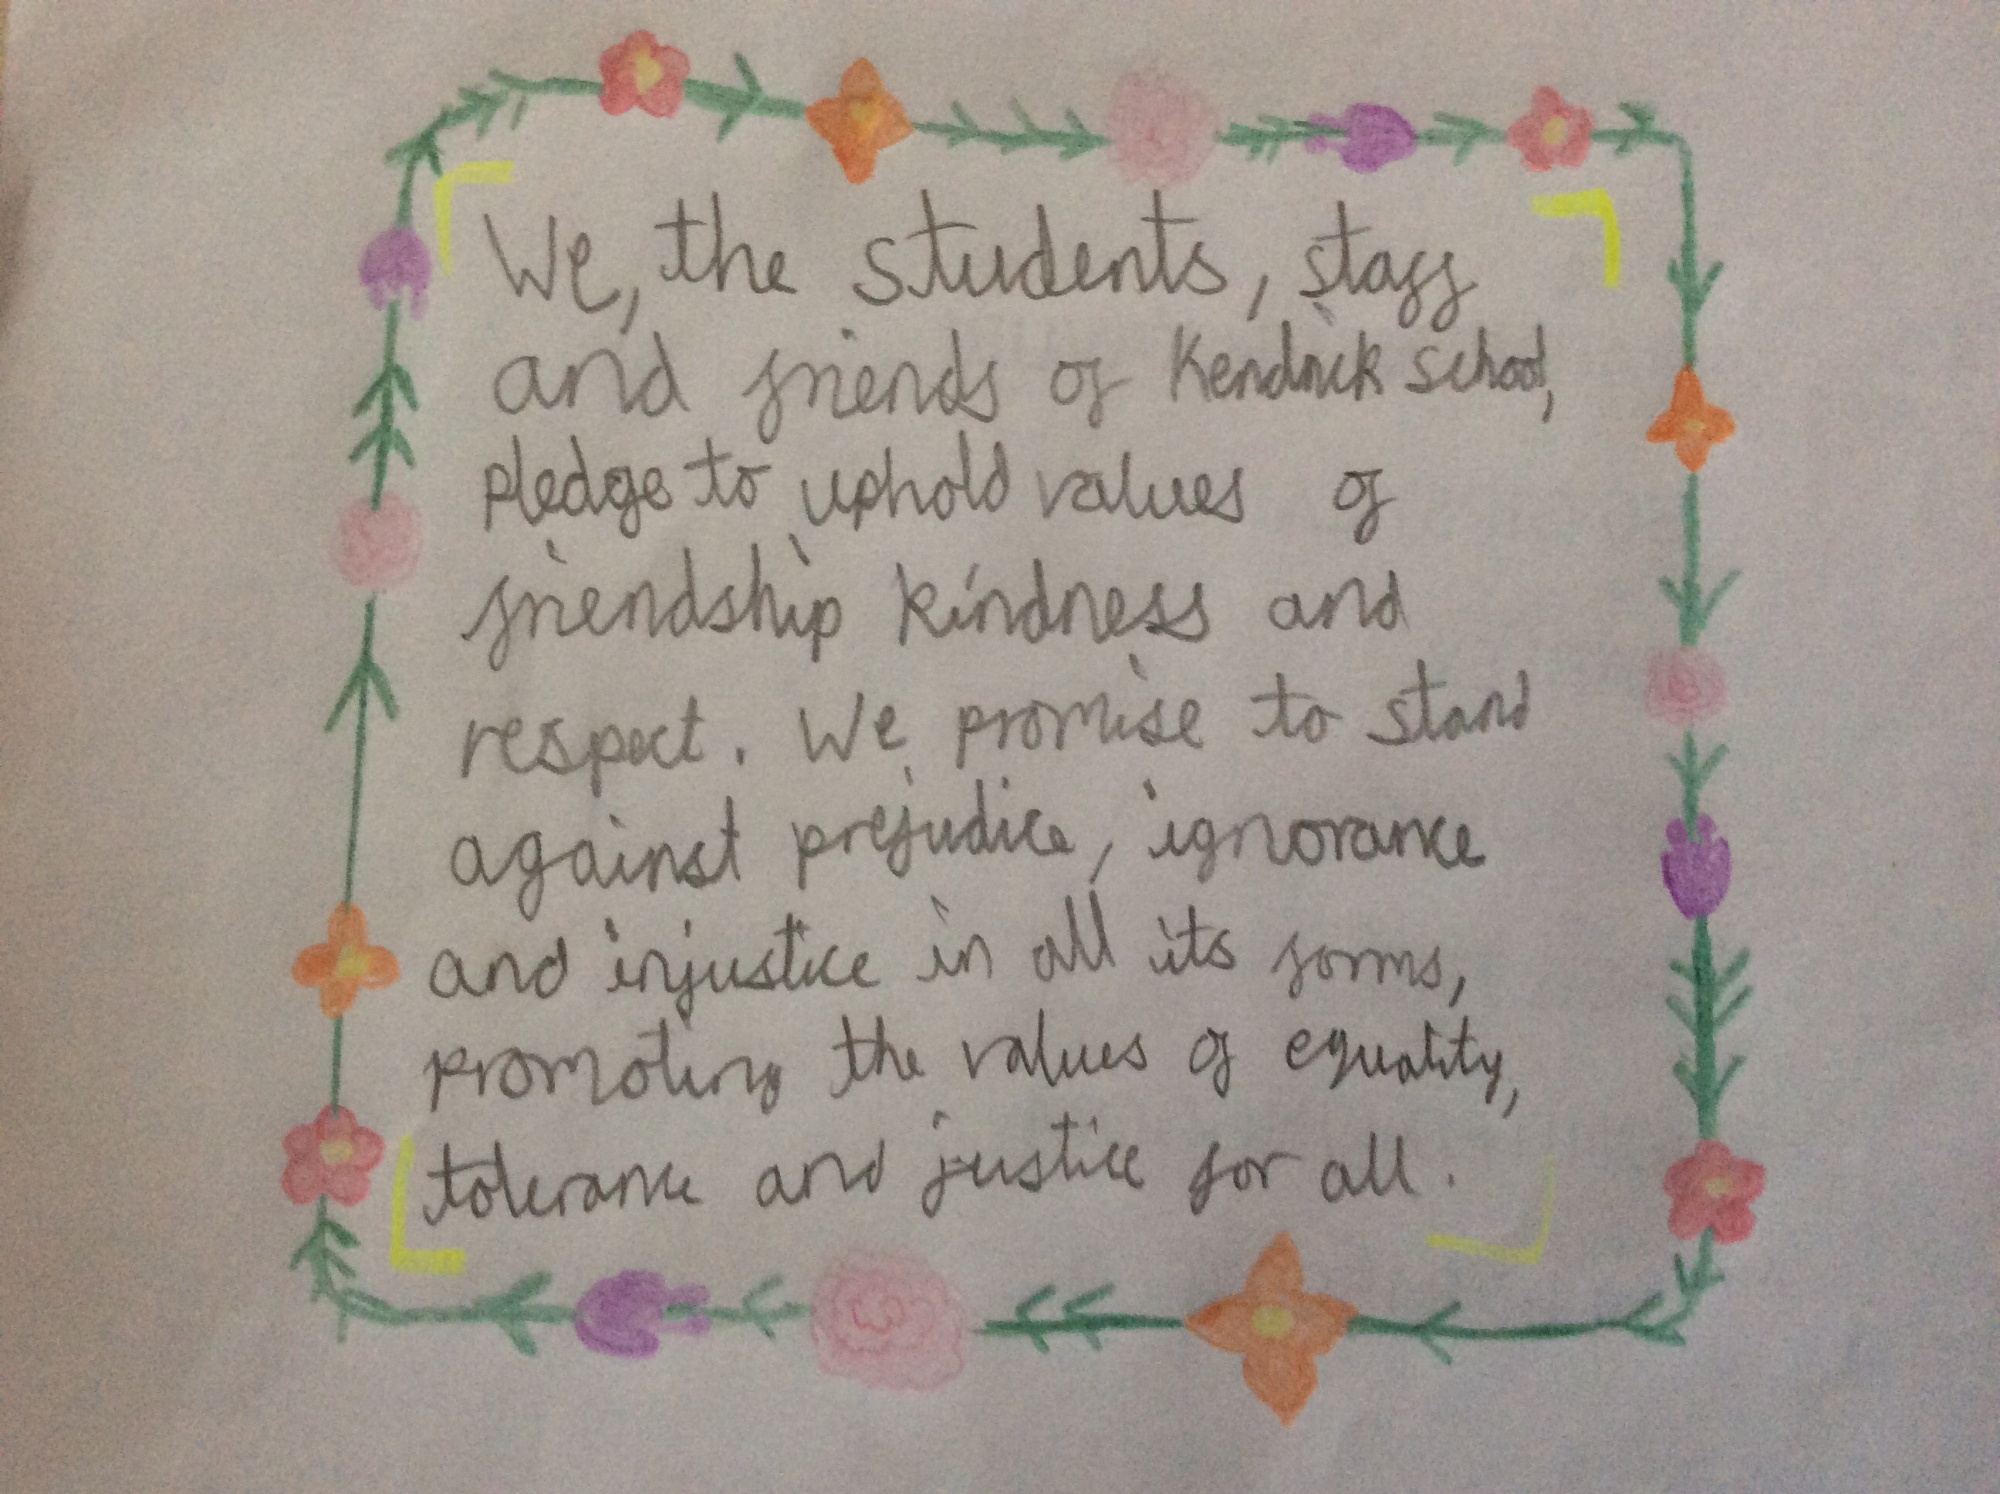 We, the students, staff
and friends of Kendrick School,
pledge to uphold values of
friendship kindness and
respect. We promise to stand
against prejudice, ignorance
and injustice in all its forms,
promoting the values of equality,
tolerance and justice for all.